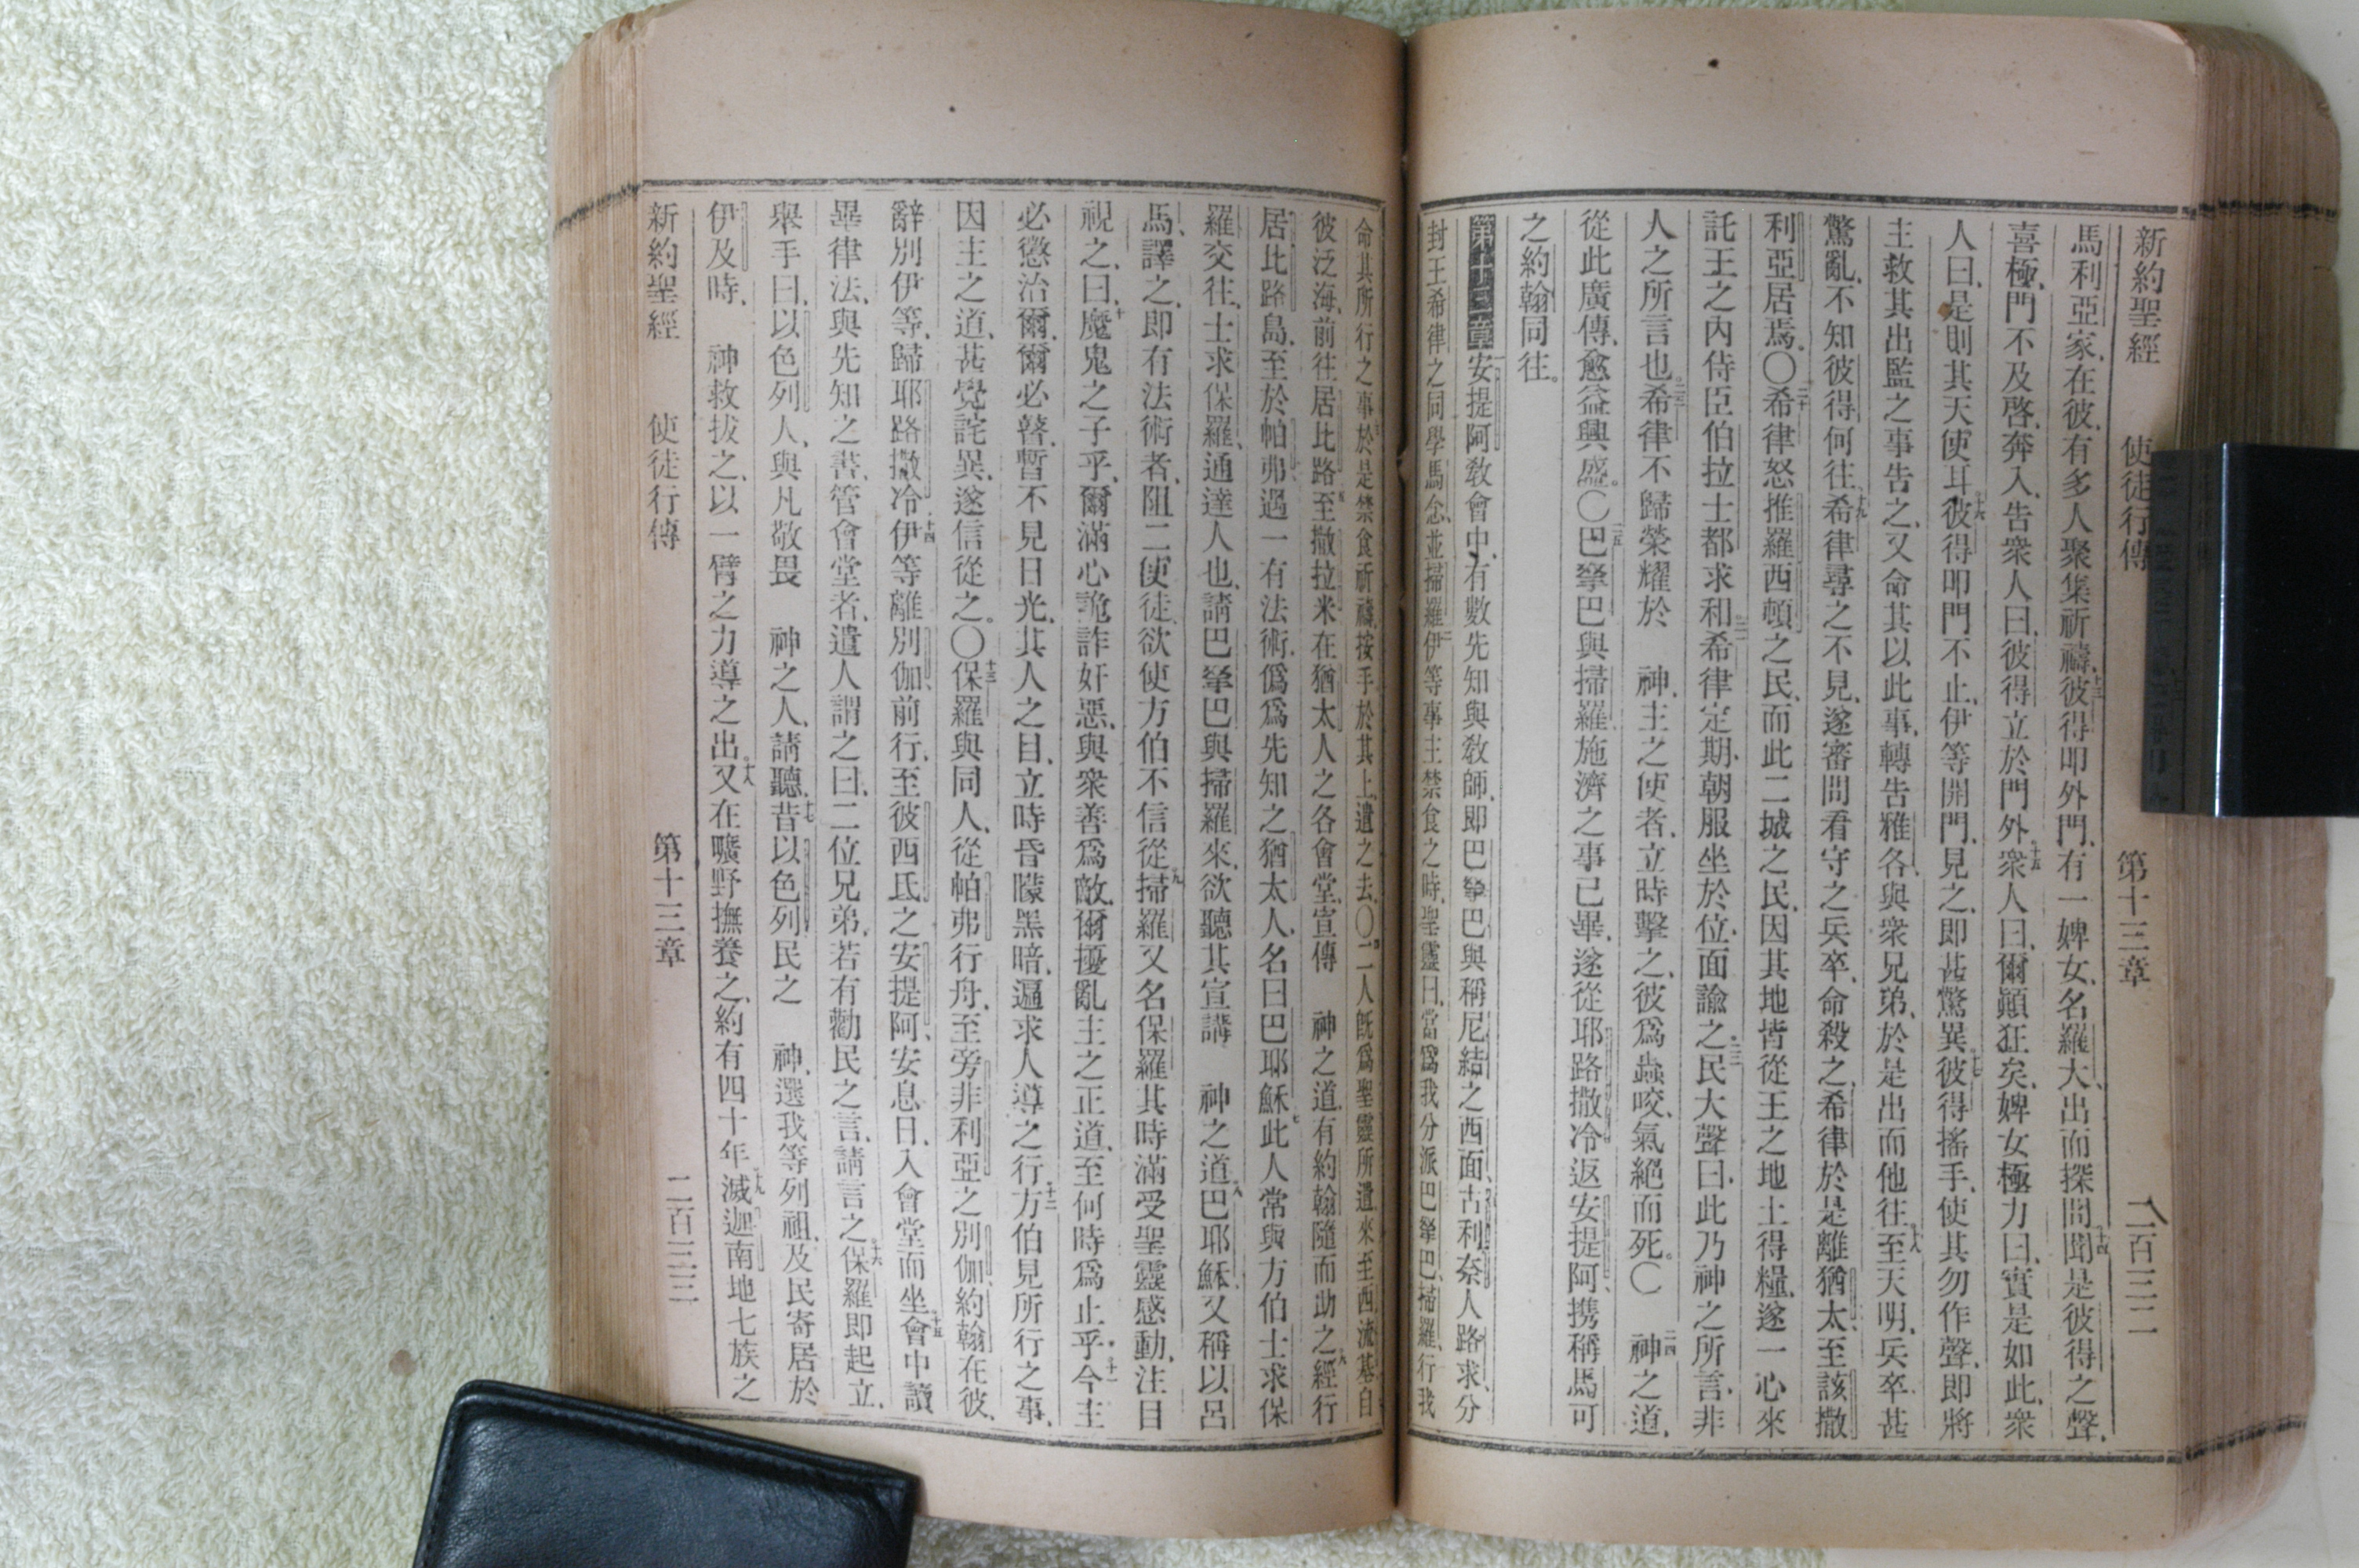 新約聖經 使徒行傳 第十三章 二百三二
馬利亞家、在彼、有多人聚集祈禱、十三彼得叩外門、有一婢女、名羅大、出而探問、十四聞是彼得之聲、
喜極、門不及啓、奔入、告衆人曰、彼得立於門外、十五衆人曰、爾顚狂矣、婢女極力曰、實是如此、衆
人曰、是則其天使耳、十六彼得叩門不止、伊等開門、見之、即甚驚異、十七彼得搖手、使其勿作聲、即將
主救其出監之事告之、又命其以此事、轉告雅各、與衆兄弟、於是出而他往、十八至天明、兵卒、甚
驚亂、不知彼得何往、十九希律尋之不見、遂審問看守之兵卒、命殺之、希律於是離猶太、至該撒
利亞居焉。〇二十希律怒推羅西頓之民、而此二城之民、因其地皆從王之地土得糧、遂一心來
託王之內侍臣伯拉士都求和。二一希律定期、朝服坐於位、面諭之、二二民大聲曰、此乃神之所言、非
人之所言也。二三希律不歸榮耀於 神、主之使者、立時擊之、彼爲蟲咬、氣絕而死。〇二四 神之道、
從此廣傳、愈益興盛。〇二五巴拏巴與掃羅、施濟之事已畢、遂從耶路撒冷返安提阿、携稱馬可
之約翰同往。
第十三章 安提阿敎會中、有數先知與敎師、即巴拏巴、與稱尼結之西面、古利奈人路求、分
封王希律之同學馬念、並掃羅、二伊等事主禁食之時、聖靈曰、當爲我分派巴拏巴、掃羅、行我
命其所行之事、三於是禁食祈禱、按手於其上、遣之去、〇四二人旣爲聖靈所遣、來至西流基、自
彼泛海、前往居比路、五至撒拉米、在猶太人之各會堂、宣傳 神之道、有約翰隨而助之、六經行
居比路島、至於帕弗、遇一有法術、僞爲先知之猶太人、名曰巴耶穌、七此人常與方伯士求保
羅交往、士求保羅、通達人也、請巴拏巴與掃羅來、欲聽其宣講 神之道、八巴耶穌、又稱以呂
馬、譯之、即有法術者、阻二使徒、欲使方伯不信從、九掃羅又名保羅、其時滿受聖靈感動、注目
視之、十曰、魔鬼之子乎、爾滿心詭詐奸惡、與衆善爲敵、爾擾亂主之正道、至何時爲止乎、十一今主
必懲治爾、爾必瞽、暫不見日光、其人之目、立時昏朦黑暗、遍求人導之行、十二方伯見所行之事、
因主之道、甚覺詫異、遂信從之。〇十三保羅與同人、從帕弗行舟、至旁非利亞之別伽、約翰在彼、
辭別伊等、歸耶路撒冷、十四伊等離別伽、前行、至彼西氐之安提阿、安息日、入會堂而坐、十五會中讀
畢律法、與先知之書、管會堂者、遣人謂之曰、二位兄弟、若有勸民之言、請言之。十六保羅即起立、
舉手曰、以色列人、與凡敬畏 神之人、請聽、十七昔以色列民之 神、選我等列祖、及民寄居於
伊及時、 神救拔之、以一臂之力導之出。十八又在曠野撫養之、約有四十年、十九滅迦南地七族之
新約聖經 使徒行傳 第十三章 二百三三